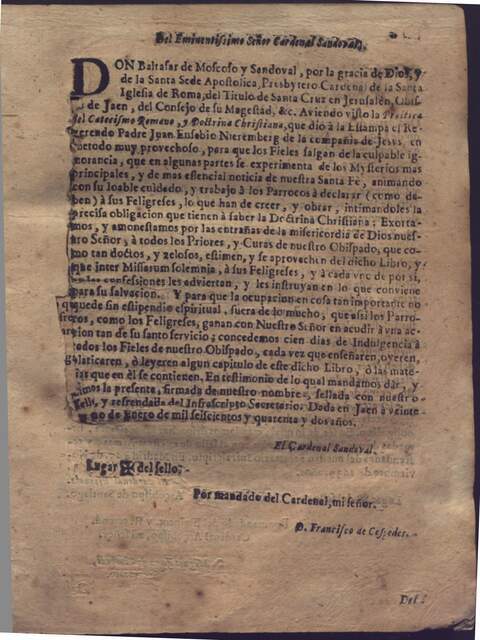 Del Eminentissimo Señor Cardenal Sandoval.
DON Baltasar de Moscoso y Sandoval, por la gracia de Dios, y
de la Santa Sede Apostolica, Presbytero Cardenal de la Santa
Iglesia de Roma, del Titulo de Santa Cruz en Jerusalén, Obis-
de Jaen, del Consejo de su Magestad, &c. Aviendo visto la Practica
del Catecismo Romano, y Doctrina Christiana, que diò à la Estampa el Re-
verendo Padre Juan Eusebio Nieremberg de la compañia de Jesus, en
metodo muy provechoso, para que los Fieles salgan de la culpable ig-
norancia, que en algunas partes se experimenta de los Mysterios mas
principales, y de mas essencial noticia de nuestra Santa Fè, animando
con su loable cuidado, y trabajo à los Parrocos à declarar (como de-
ben) à sus Feligreses, lo que han de creer, y obrar, intimandoles la
precisa obligacion que tienen à saber la Doctrina Christiana; Exorta-
mos, y amonestamos por las entrañas de la misericordia de Dios nues-
tro Señor, à todos los Priores, y Curas de nuestro Obispado, que co-
mo tan doctos, y zelosos, estimen, y se aprovechen del dicho Libro, y
que inter Missarum solemnia, à sus Feligreses, y à cada uno de por sì,
en las confessiones les advierten, y les instruyan en lo que conviene
para su salvacion. Y para que la ocupacion en cosa tan importante no
quede sin estipendio espiritual, fuera de lo mucho, que assi los Parro-
rocos, como los Feligreses, ganan con Nuestro Señor en acudir à una ac-
cion tan de su santo servicio; concedemos cien dias de Indulgencia à
todos los Fieles de nuestro Obispado, cada vez que enseñaren, oyeren,
platicaren, ò leyeren algun capitulo de este dicho Libro, ò las mate-
rias que en èl se contienen. En testimonio de lo qual mandamos dàr, y
dimos la presente, firmada de nuestro nombre, sellada con nuestro
Sello, y refrendada del Infrascripto Secretario. Dada en Jaèn à veinte
y uno de Enero de mil seiscientos y quarenta y dos años.
El Cardenal Sandoval.
Lugar ✠ del sello.
Por mandado del Cardenal, mi señor.
D. Francisco de Cespedes.
Del